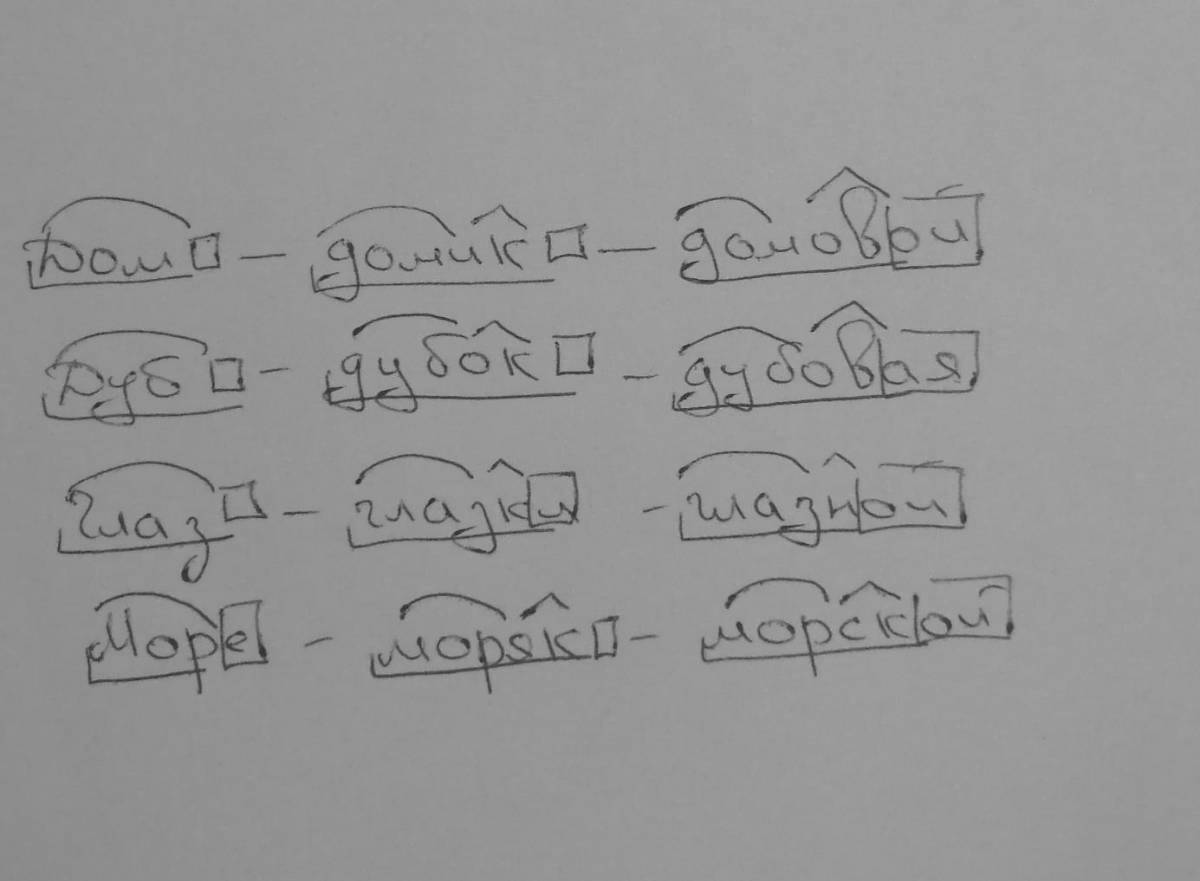 Дом – домик – домовой
Дуб – дубок – дубовая
Глаз – глазки – глазной
Море – моряк – морской